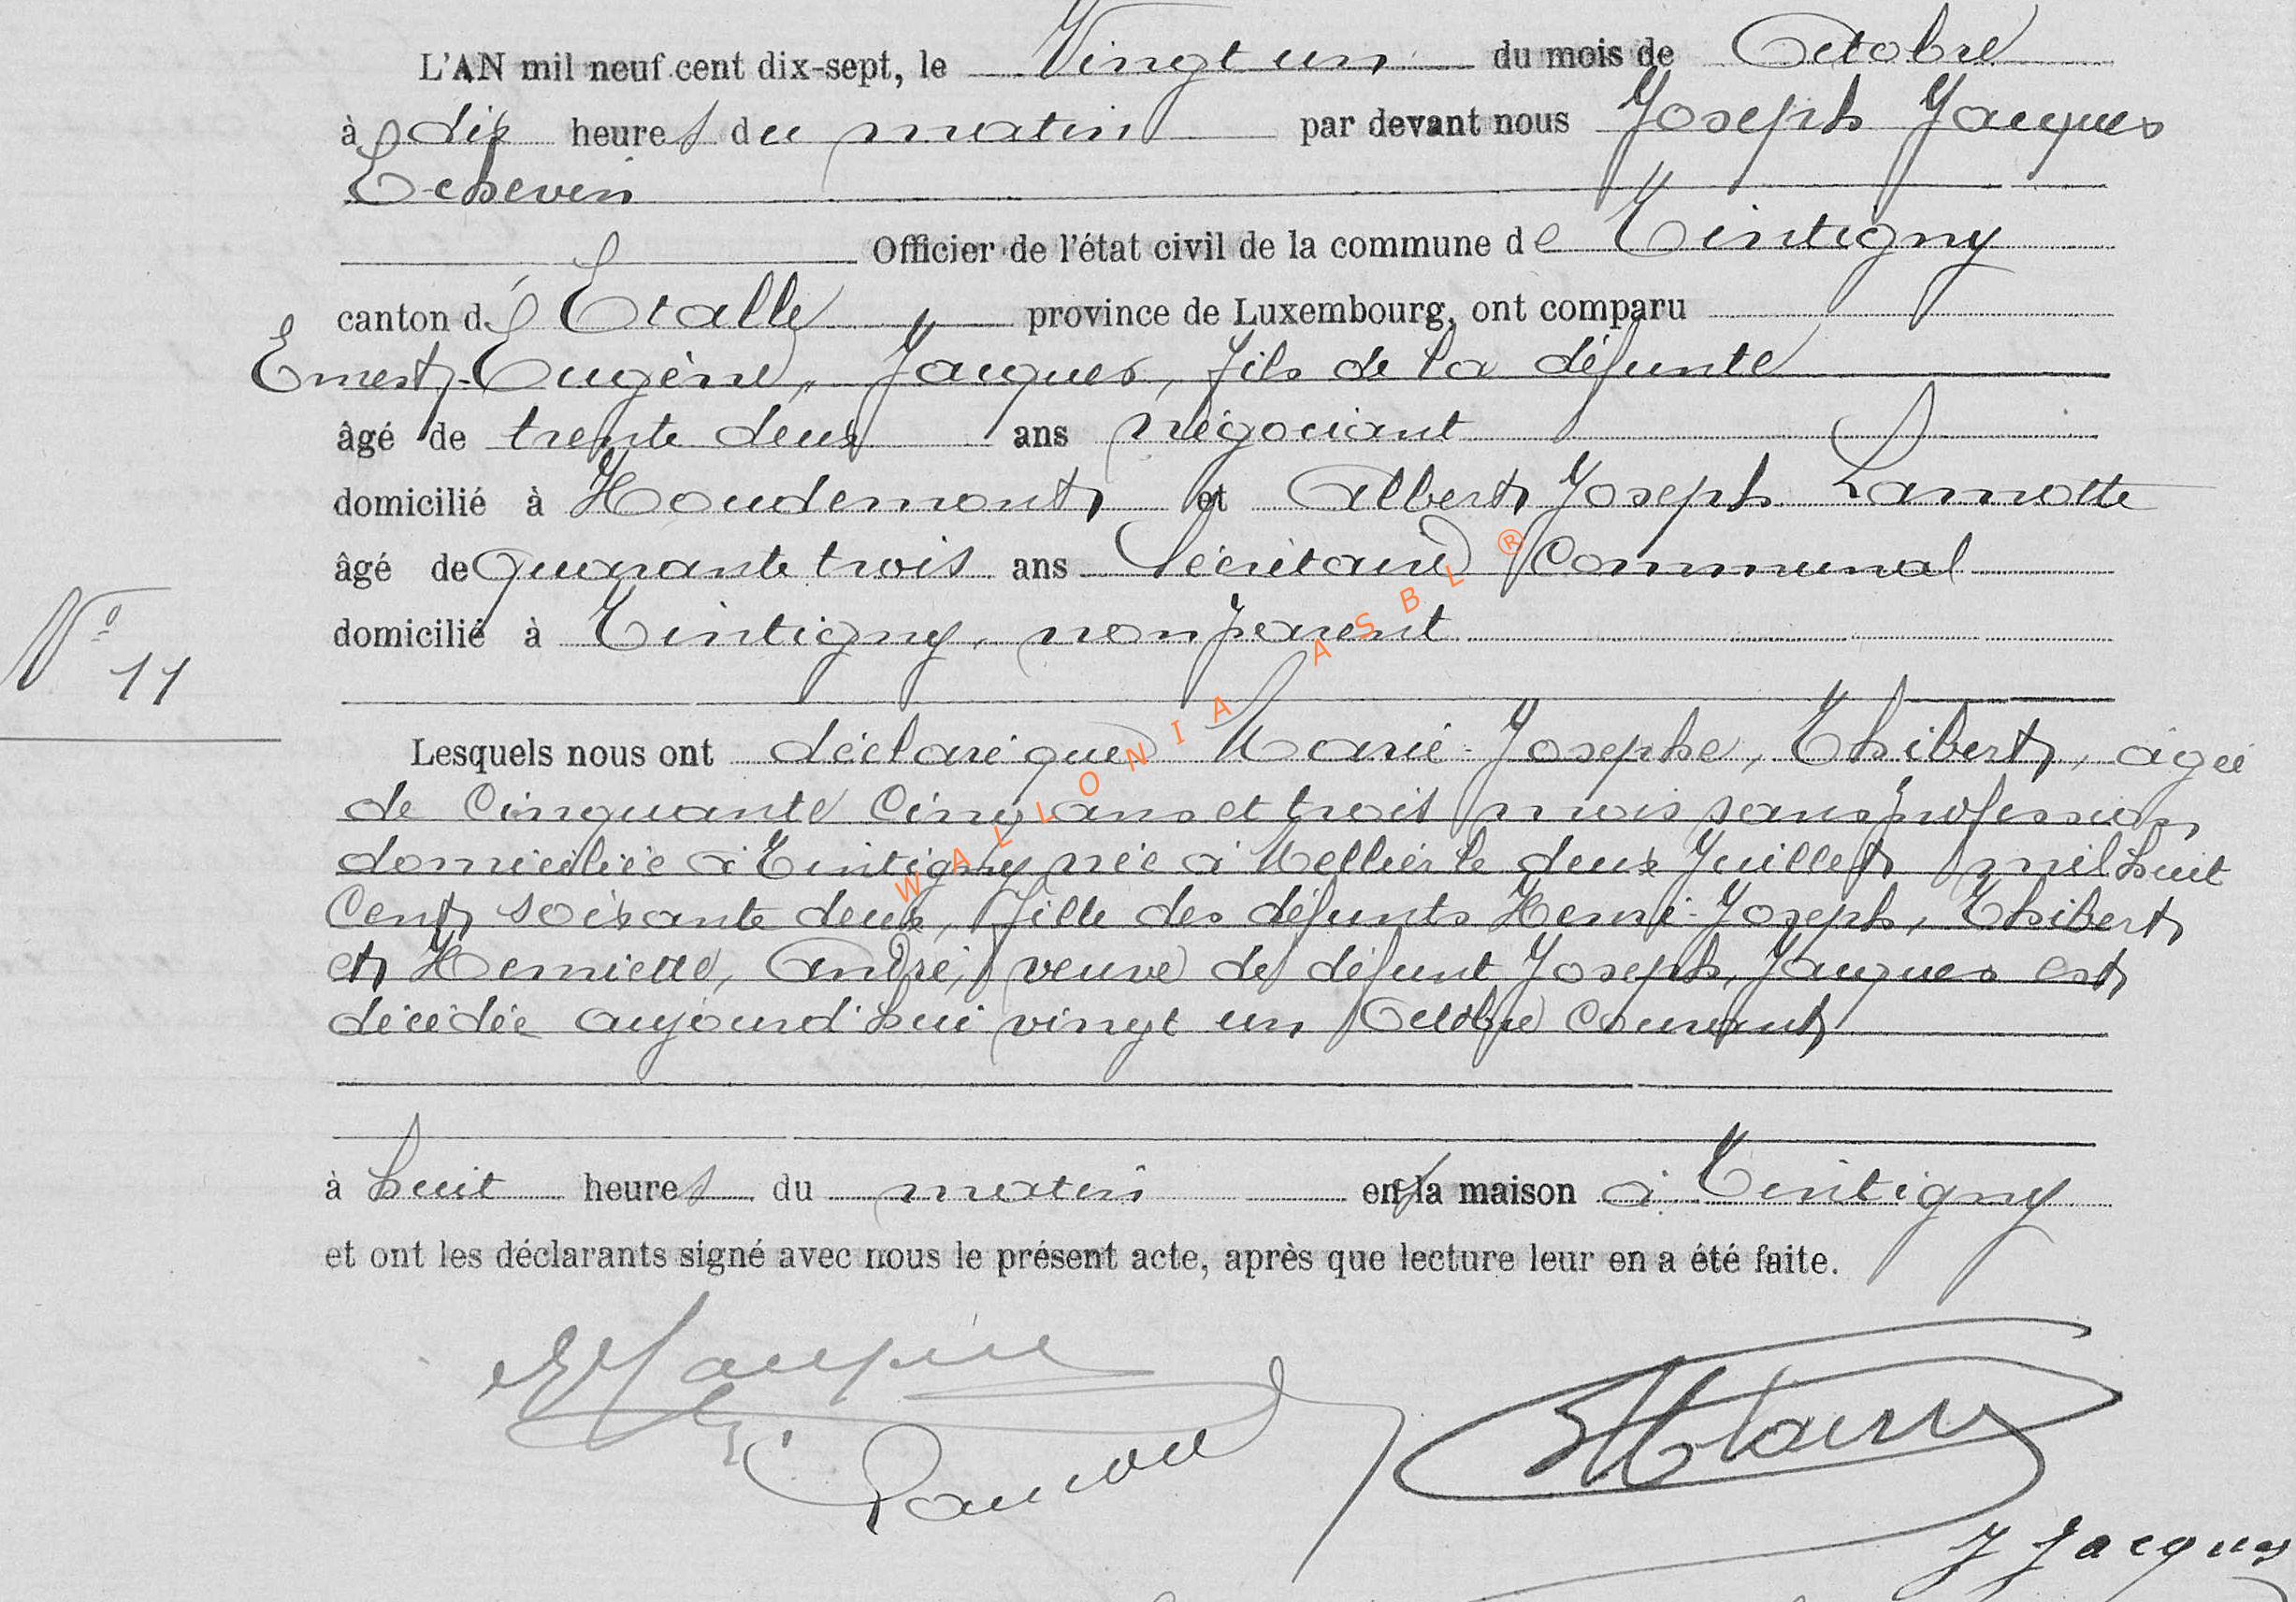 L'AN mil neuf cent dix-sept, le Vingt un du mois de Octobre
à dix heures du matin par devant nous Joseph Jacques
Echevin
Officier de l'état civil de la commune de Tintigny
canton d'Etalle province de Luxembourg, ont comparu
Ernest-Eugène, Jacques, fils de la défunte
âgé de trente deux ans négociant
domicilié à Houdemont et Albert Joseph Lamotte
âgé de quarante trois ans Secrétaire Communal
domicilié à Tintigny, non parent
N° 11
Lesquels nous ont déclaré que Marie-Josephe, Thibert, agée
de Cinquante Cinq ans et trois mois sans profession
domiciliée à Tintigny née à Mellier le deux Juillet mil huit
Cent soixante deux, fille des défunts Henri-Joseph, Thibert
et Henriette, André, veuve de défunt Joseph, Jacques est
décédée aujourd'hui vingt un Octobre Courant
à huit heures du matin en la maison à Tintigny
et ont les déclarants signé avec nous le présent acte, après que lecture leur en a été faite.
J Jacques
WALLONIA ASBL ®